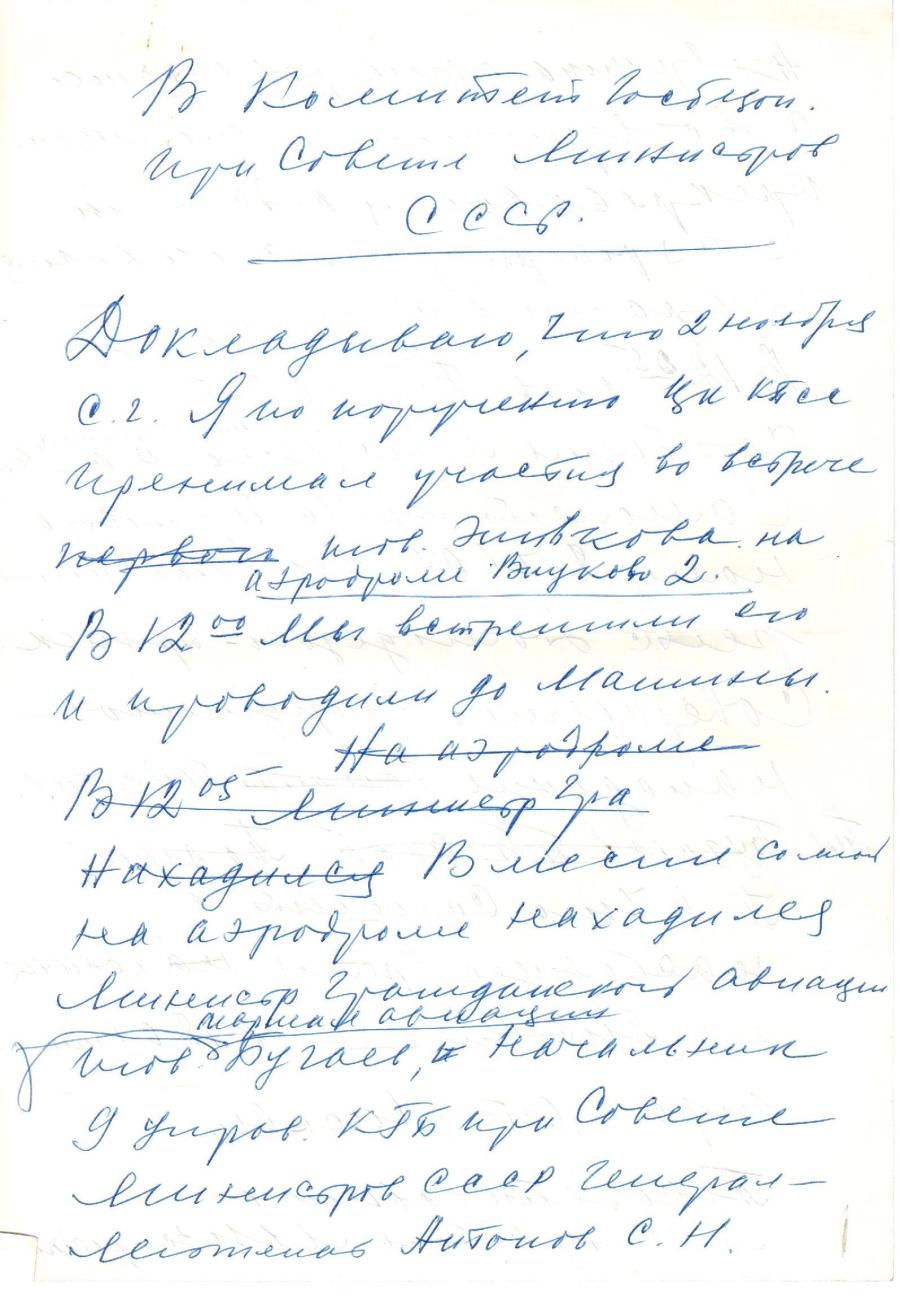 В Комитет Госбезоп.
при Совете Министров
СССР.
Докладываю, что 2 ноября
с.г. Я по поручению ЦК КПСС
пренимал участия во встрече
первого тов. Живкова на
аэродроме Внуково 2.
В 12 00 Мы встретили его
и проводили до Машины.
На аэродроме
В 12 05 Министр Гра
Находился Вместе со мной
на аэродроме находился
Министр Гражданской авиации
маршал авиации
тов. Бугаев, Начальник
9 управ. КГБ при Совете
Министров СССР Генерал-
Лейтенант Антонов С. Н.